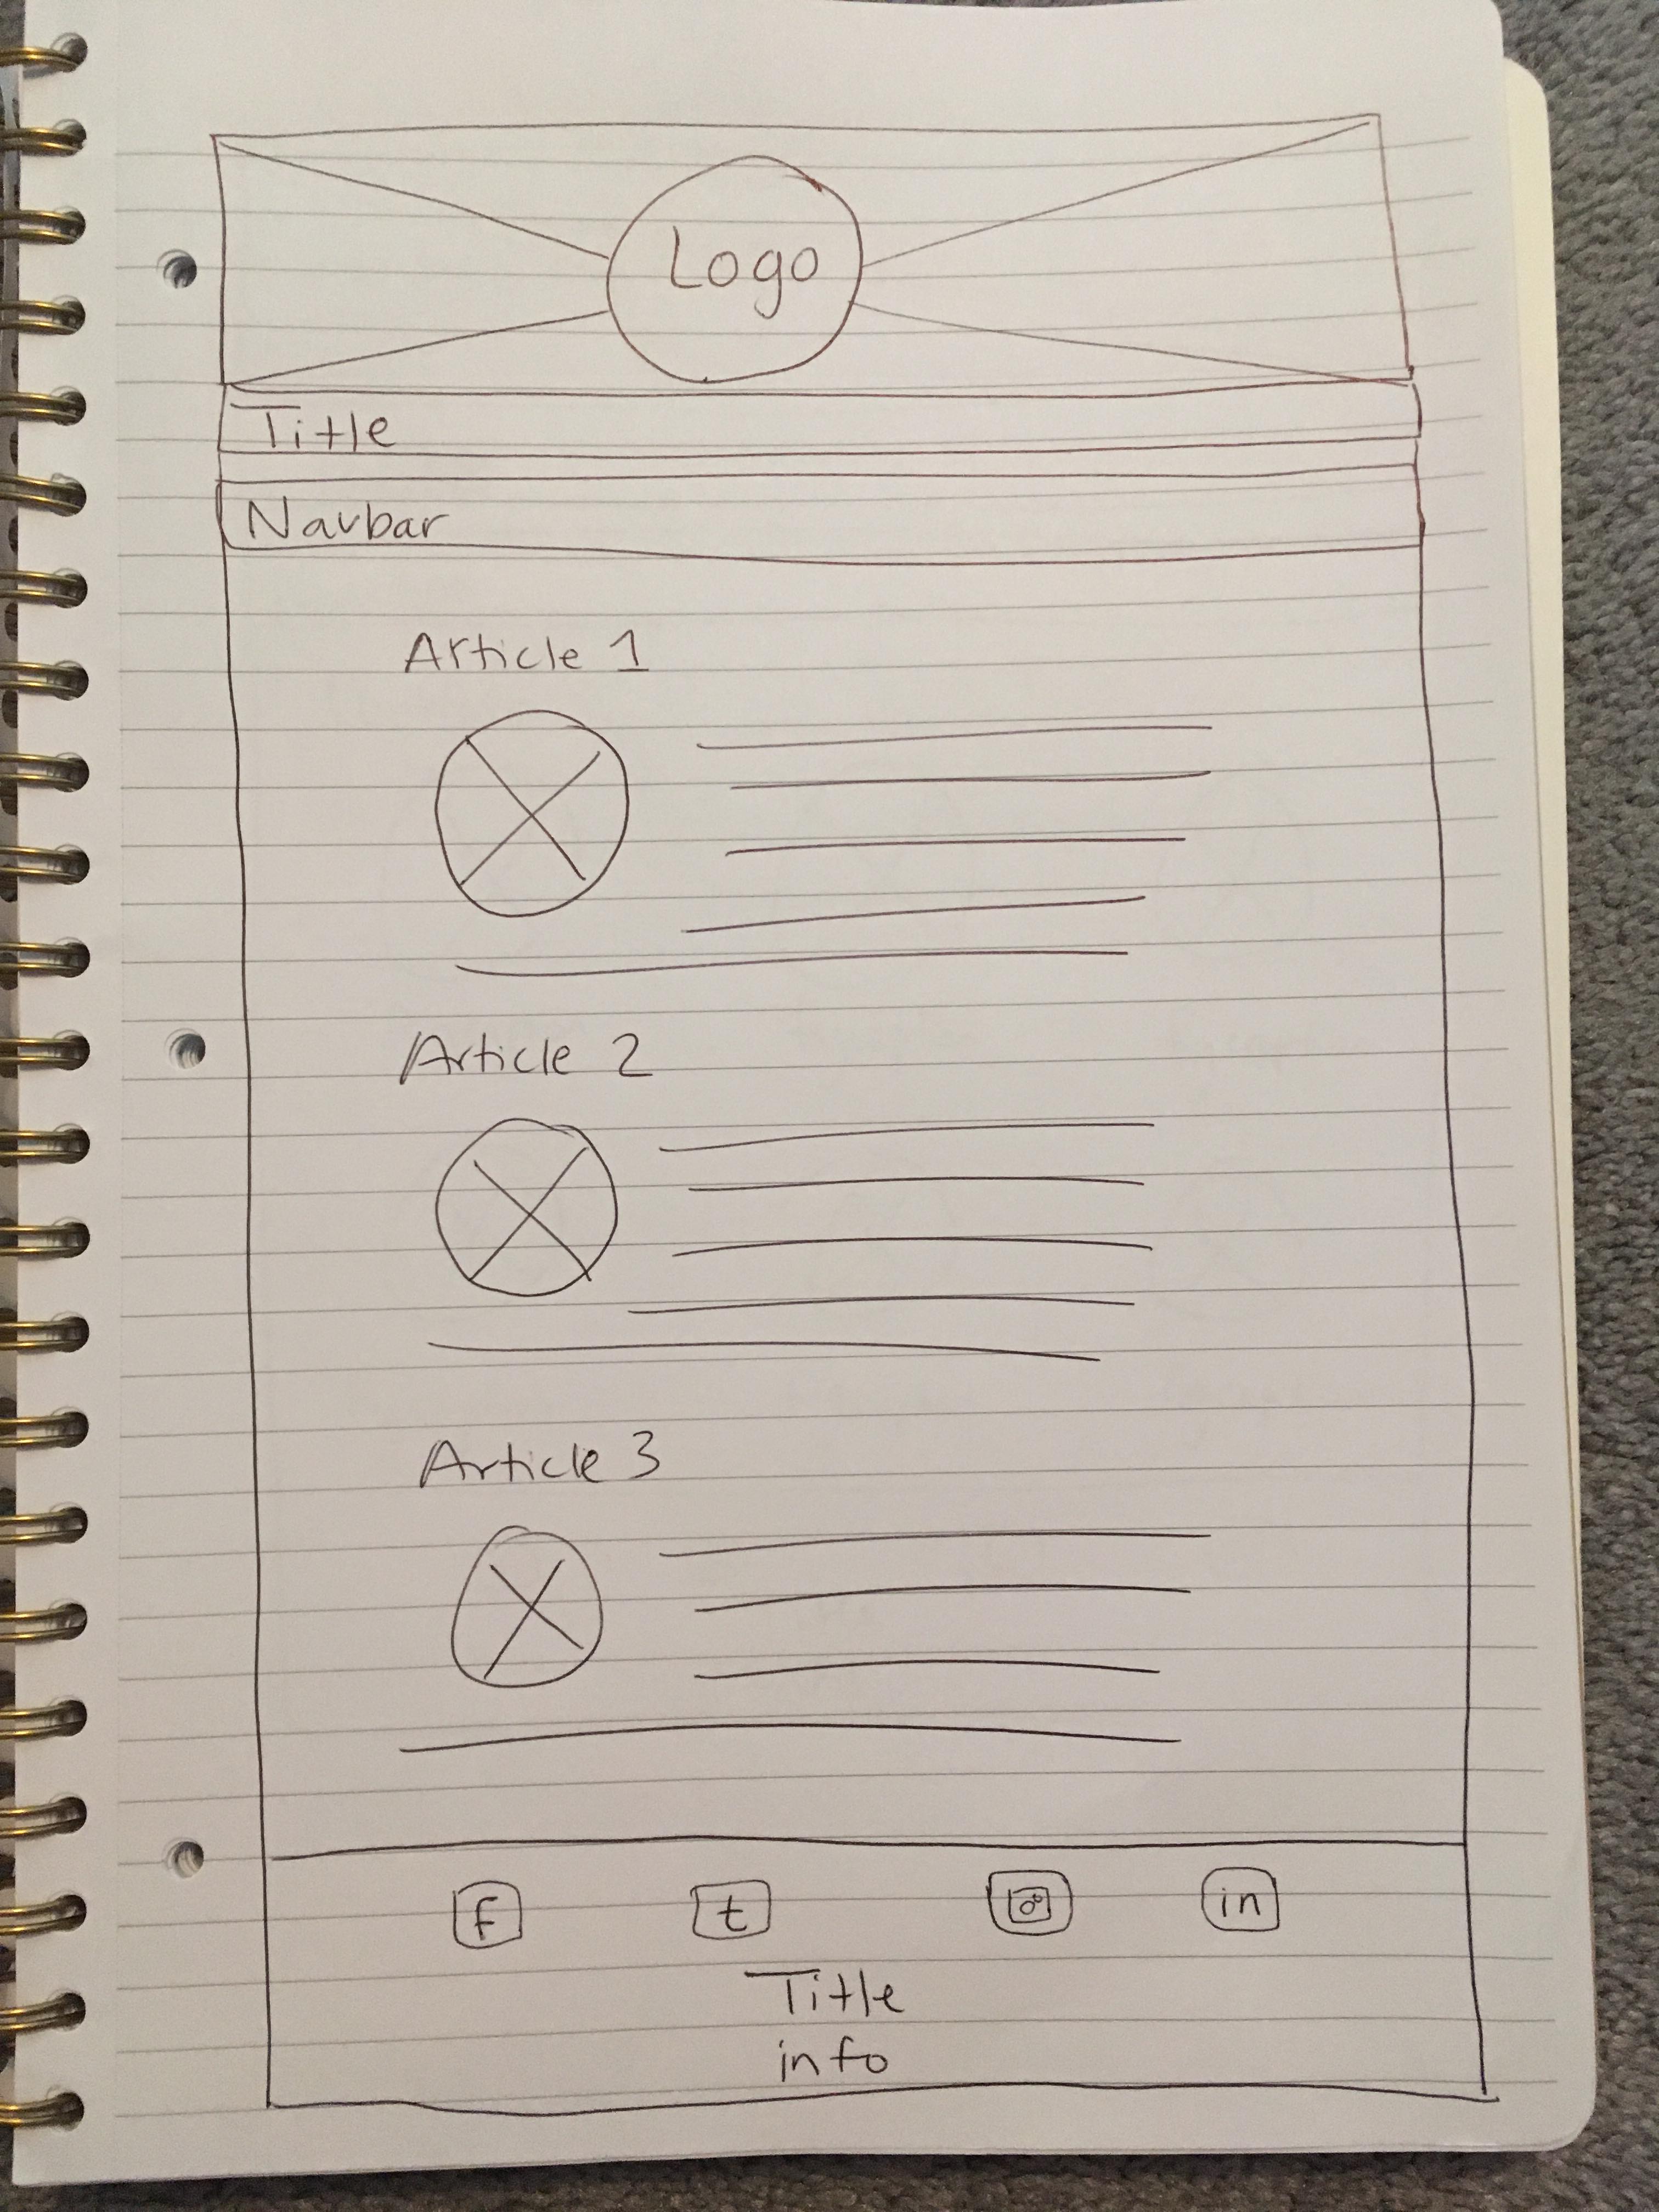 Logo
Title
Navbar
Article 1
Article 2
Article 3
f t in
Title
info